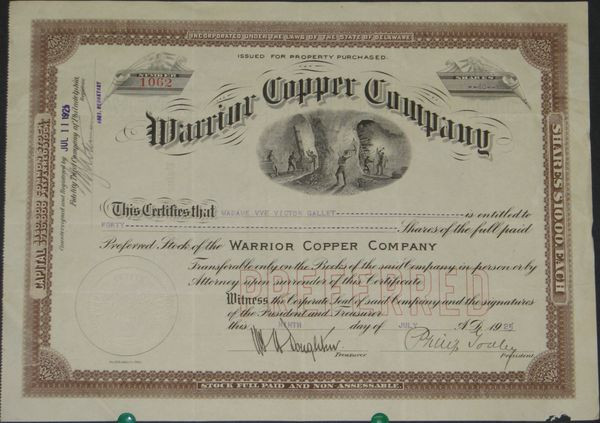 INCORPORATED UNDER THE LAWS OF THE STATE OF DELAWARE
ISSUED FOR PROPERTY PURCHASED.
NUMBER
1062
SHARES
Warrior Copper Company
This Certifies that MADAME VVE VICTOR GALLET is entitled to
FORTY Shares of the full paid
Preferred Stock of the WARRIOR COPPER COMPANY
Transferable only on the Books of the said Company in person or by
Attorney upon surrender of this Certificate
PREFERRED
Witness the Corporate Seal of said Company and the signatures
of the President and Treasurer
this NINTH day of JULY A.D. 1925
Treasurer
President
STOCK FULL PAID AND NON ASSESSABLE.
Countersigned and Registered by
JUL 11 1925
Fidelity Trust Company of Philadelphia
Registrar
SHARES $10.00 EACH